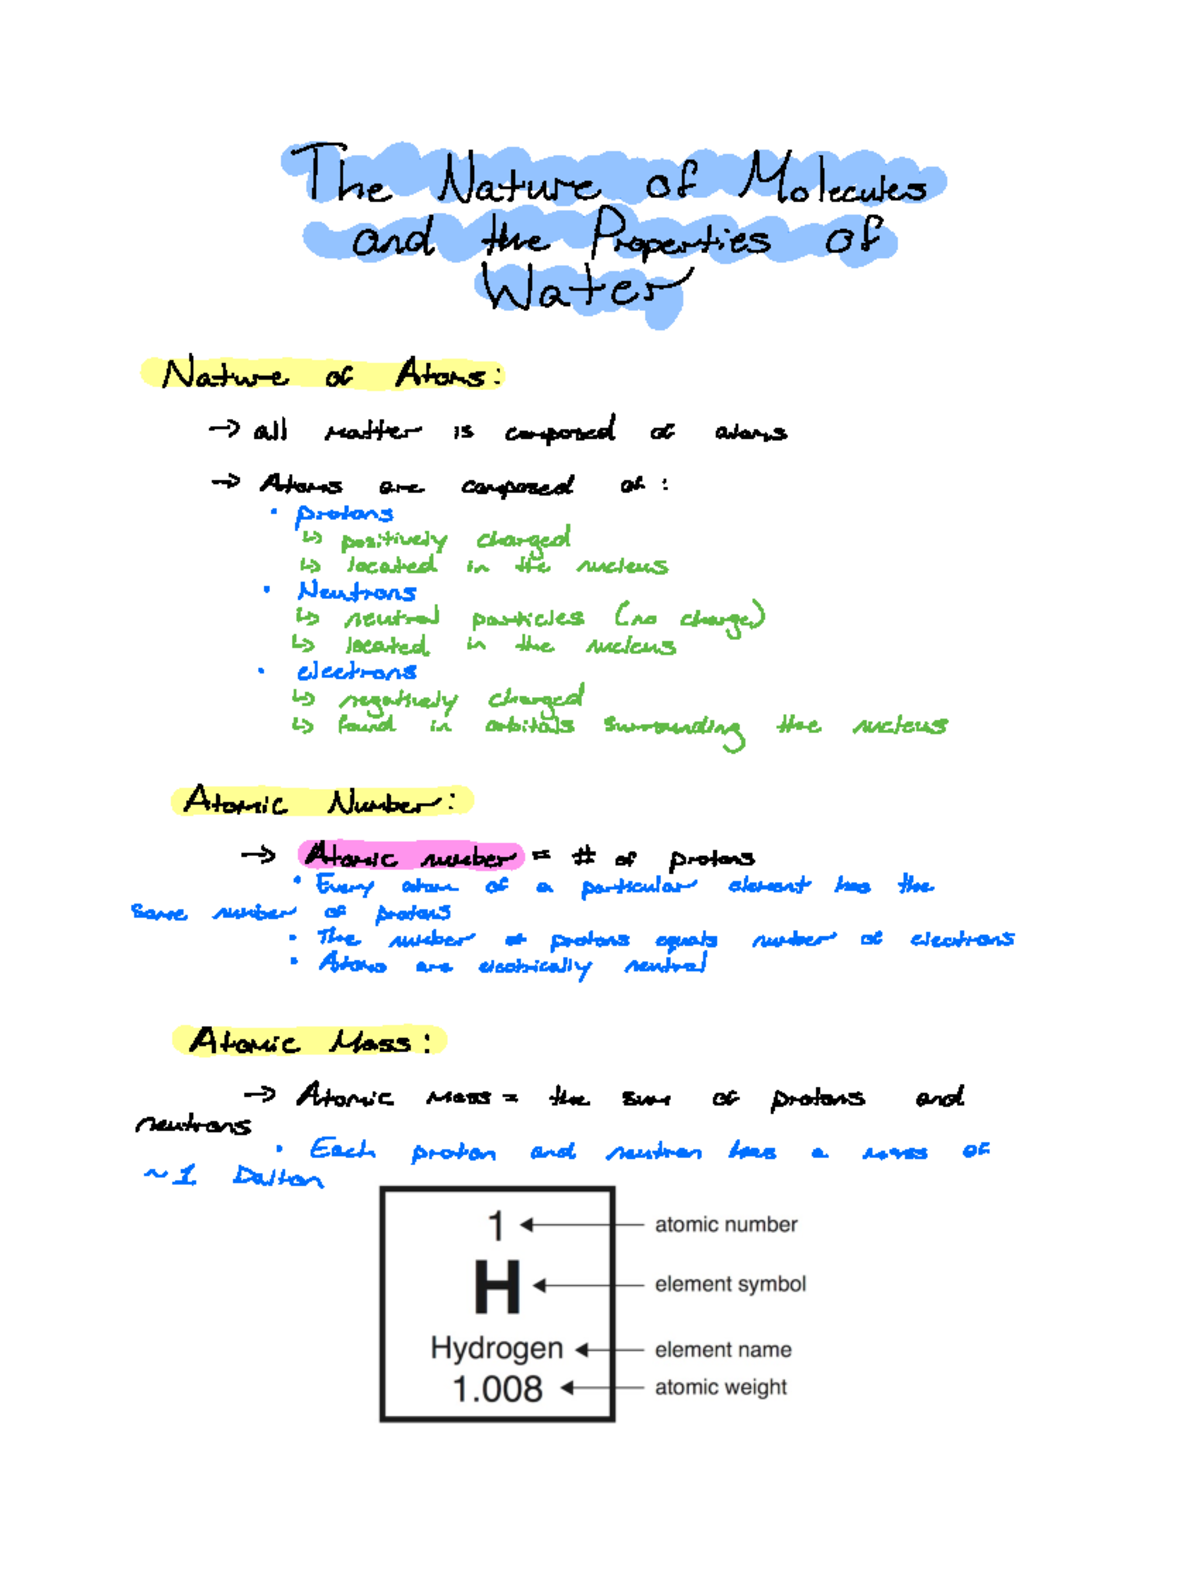 The Nature of Molecules
and the Properties of
Water
Nature of Atoms:
→ all matter is composed of atoms
→ Atoms are composed of:
• protons
↳ positively charged
↳ located in the nucleus
• Neutrons
↳ neutral particles (no charge)
↳ located in the nucleus
• electrons
↳ negatively charged
↳ found in orbitals surrounding the nucleus
Atomic Number:
→ Atomic number = # of protons
• Every atom of a particular element has the
same number of protons
• The number of protons equals number of electrons
• Atoms are electrically neutral
Atomic Mass:
→ Atomic mass = the sum of protons and
neutrons
• Each proton and neutron has a mass of
~1 Dalton
1 atomic number
H element symbol
Hydrogen element name
1.008 atomic weight